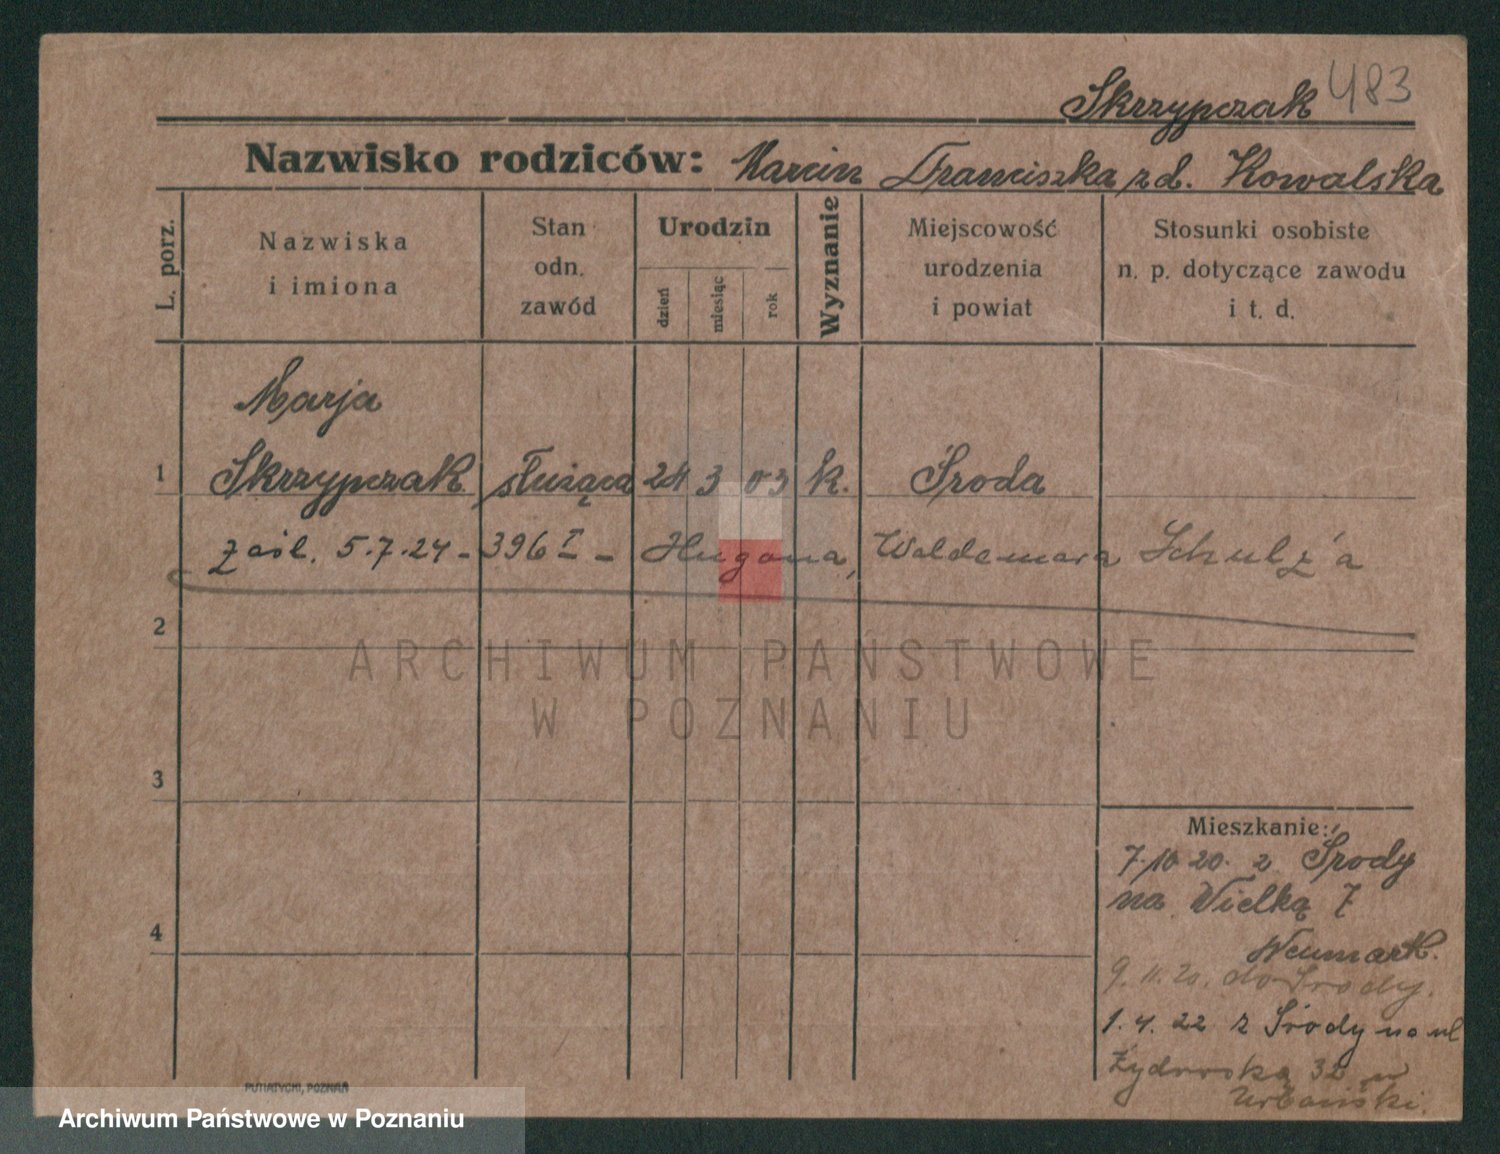 Skrzypczak 483
Nazwisko rodziców: Marcin Franciszka z d. Kowalska
L. porz.
Nazwiska
i imiona
Stan
odn.
zawód
Urodzin
dzień
miesiąc
rok
Wyznanie
Miejscowość
urodzenia
i powiat
Stosunki osobiste
n. p. dotyczące zawodu
i t. d.
Marja
1 Skrzypczak służąca 24 3 03 k. Środa
Zaśl. 5.7.24 - 396 I - Hugona, Waldemara Schulz'a
2
ARCHIWUM PAŃSTWOWE
W POZNANIU
3
Mieszkanie:
7.10 20. z Środy
na Wielką 7
4
Neumark.
9. 11. 20. do Środy.
1. 4. 22 z Środy na ul
Żydowską 32 w
Urbański.
PUTIATYCKI, POZNAŃ
Archiwum Państwowe w Poznaniu